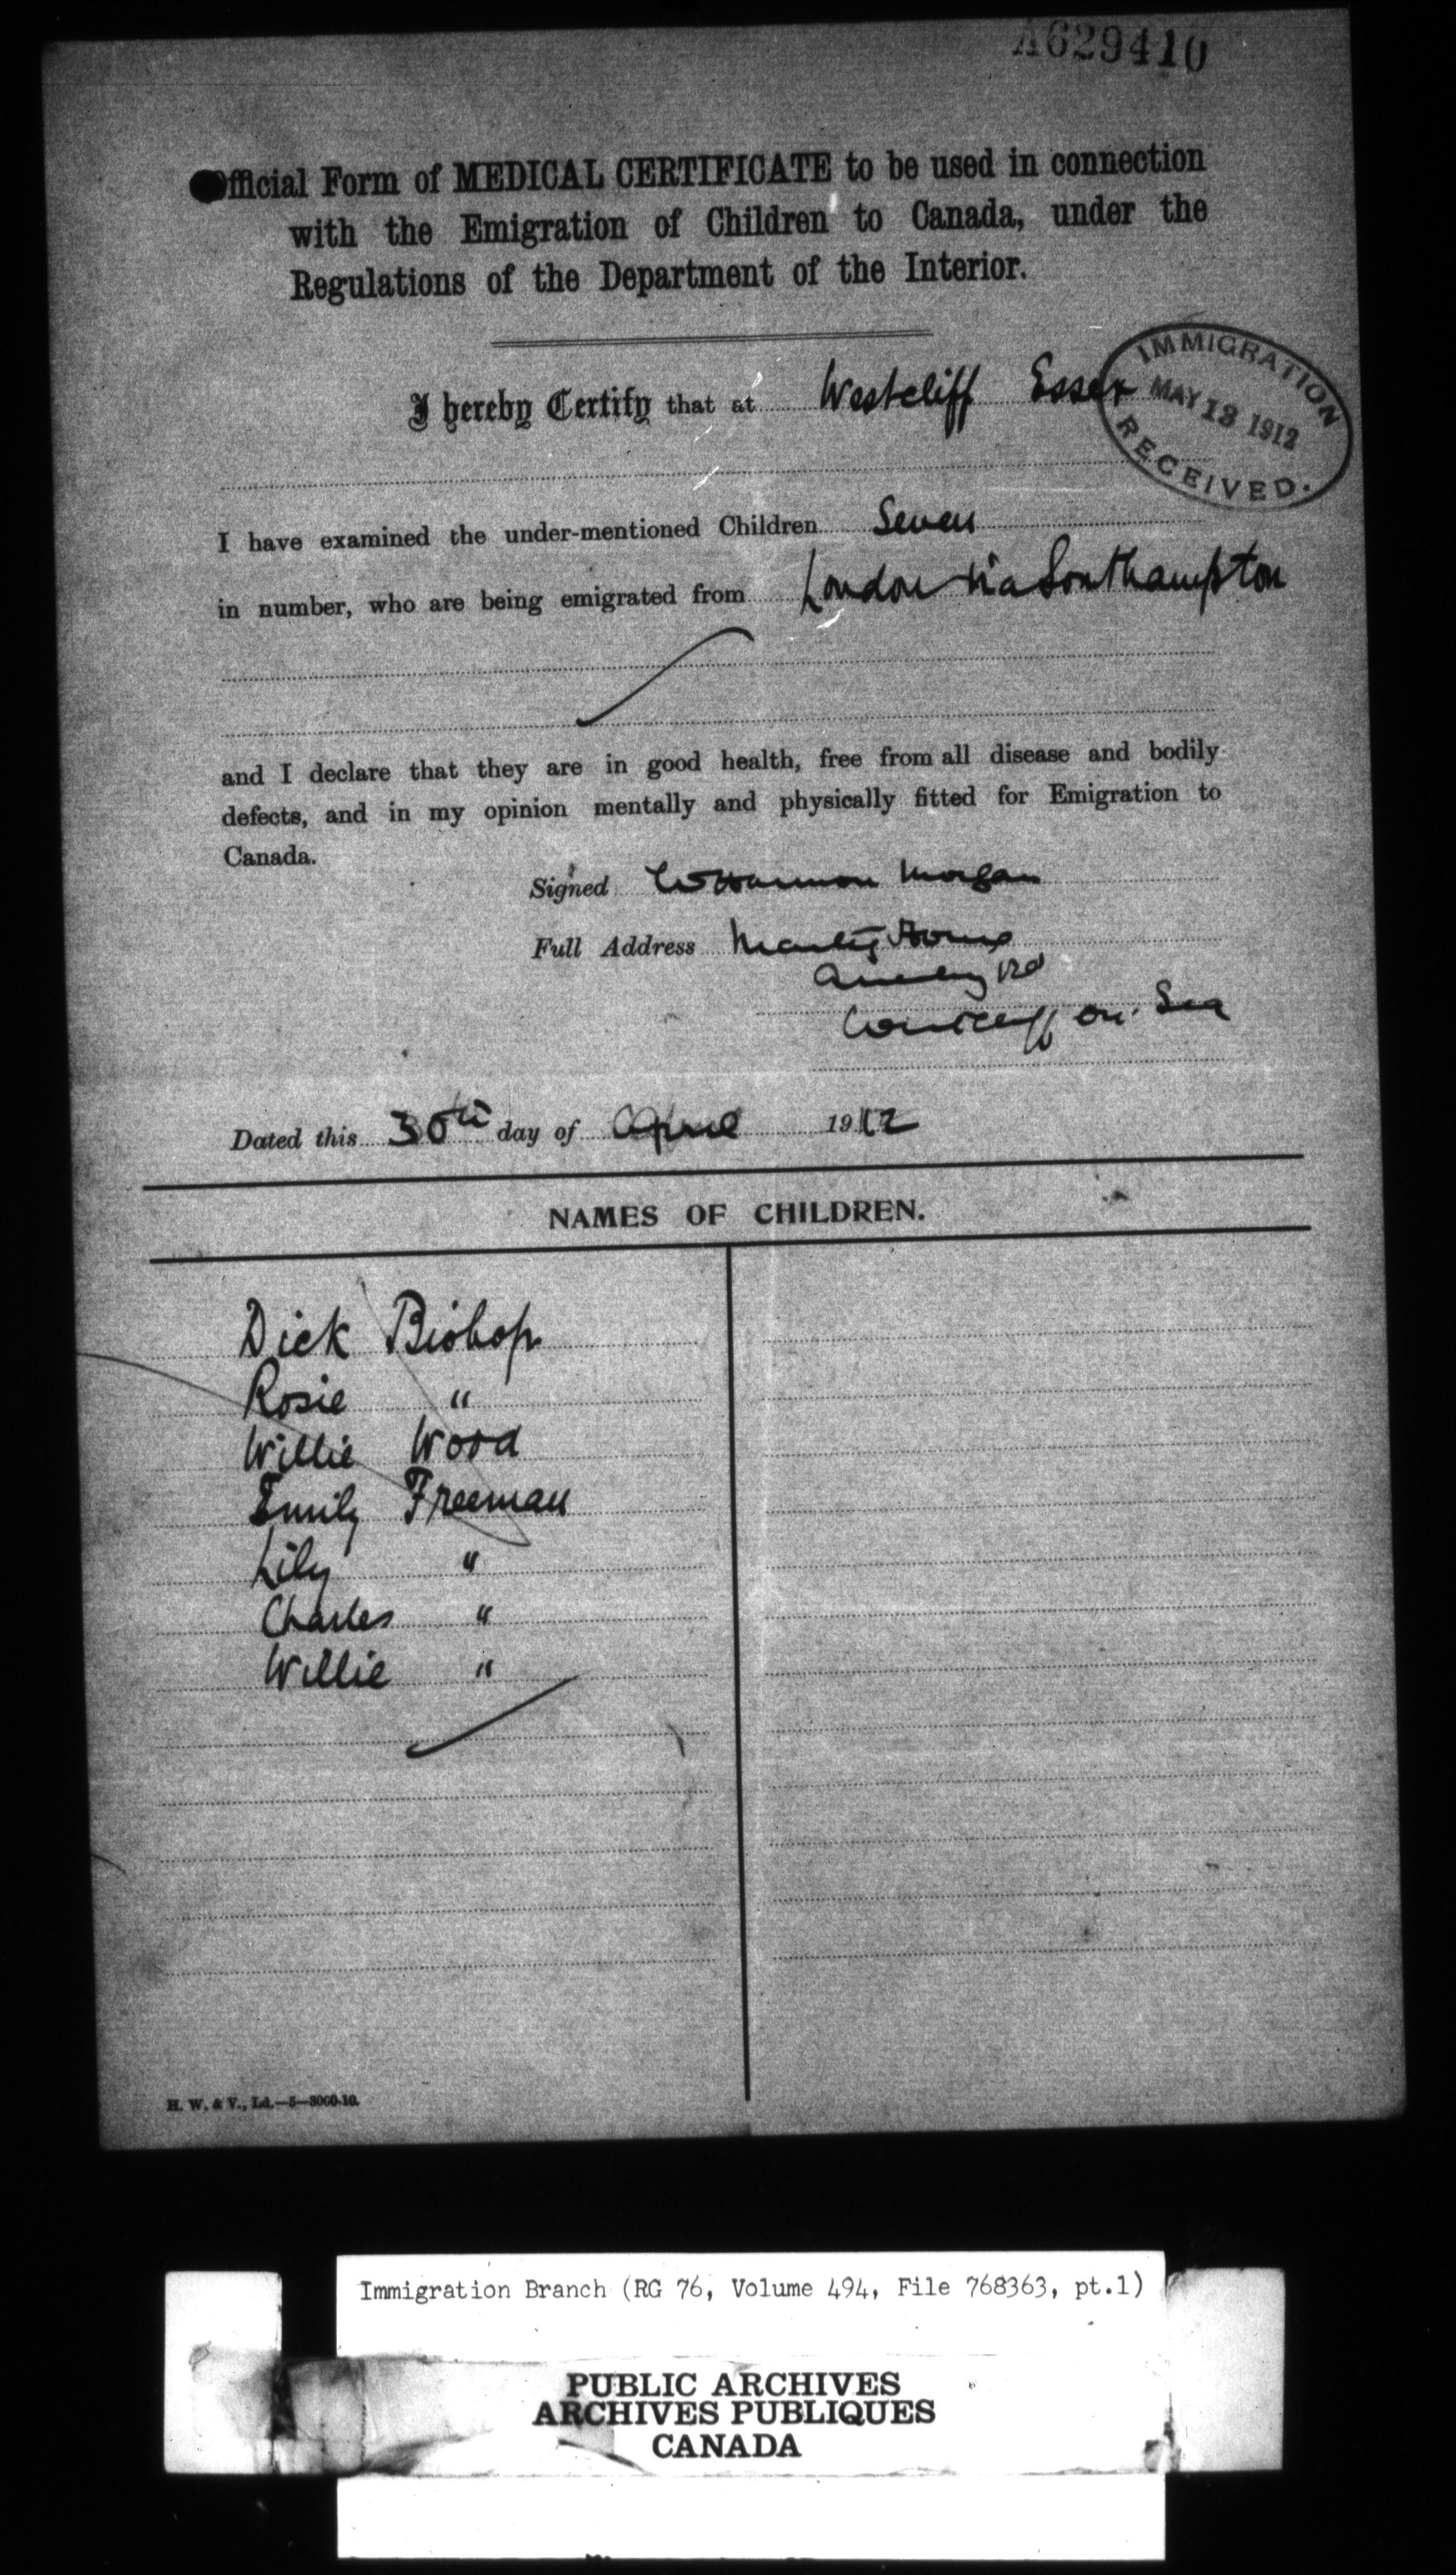 A629410
Official Form of MEDICAL CERTIFICATE to be used in connection
with the Emigration of Children to Canada, under the
Regulations of the Department of the Interior.
I hereby Certify that at Westcliff Essex
IMMIGRATION
MAY 13 1912
RECEIVED.
I have examined the under-mentioned Children Seven
in number, who are being emigrated from London via Southampton
and I declare that they are in good health, free from all disease and bodily
defects, and in my opinion mentally and physically fitted for Emigration to
Canada.
Signed Morgan
Full Address
Rd
on Sea
Dated this 30th day of April 1912
NAMES OF CHILDREN.
Dick Bishop
Rosie "
Willie Wood
Emily Freeman
Lily "
Charles "
Willie "
H. W. & V., Ld.—5—3000-10.
Immigration Branch (RG 76, Volume 494, File 768363, pt.1)
PUBLIC ARCHIVES
ARCHIVES PUBLIQUES
CANADA